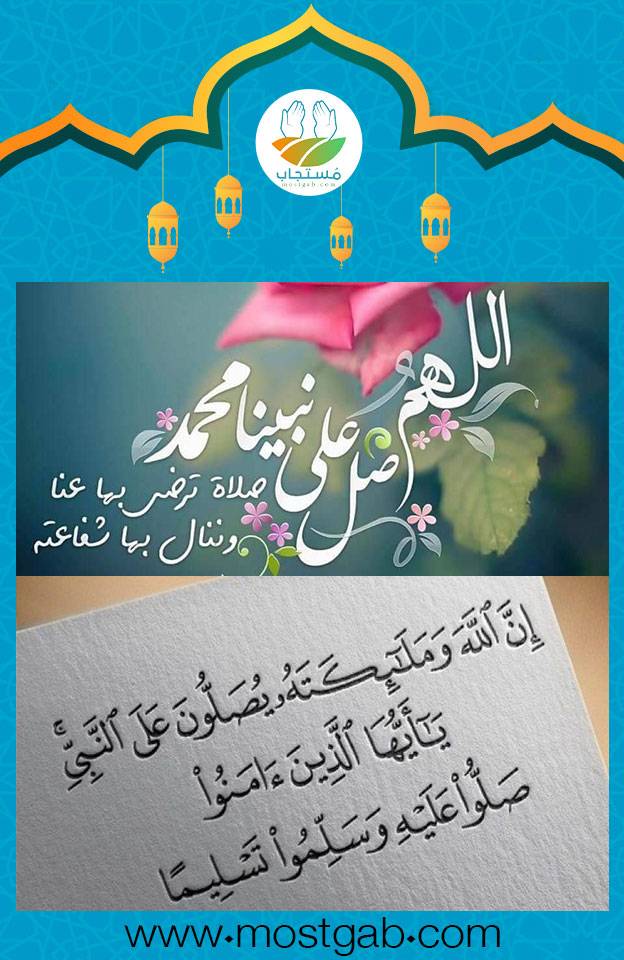 مُستجاب
mostgab.com
اللهم صل على نبينا محمد
صلاة ترضى بها عنا
وننال بها شفاعته
إِنَّ ٱللَّهَ وَمَلَٰٓئِكَتَهُۥ يُصَلُّونَ عَلَى ٱلنَّبِيِّۚ
يَٰٓأَيُّهَا ٱلَّذِينَ ءَامَنُوا۟
صَلُّوا۟ عَلَيْهِ وَسَلِّمُوا۟ تَسْلِيمًا
www.mostgab.com